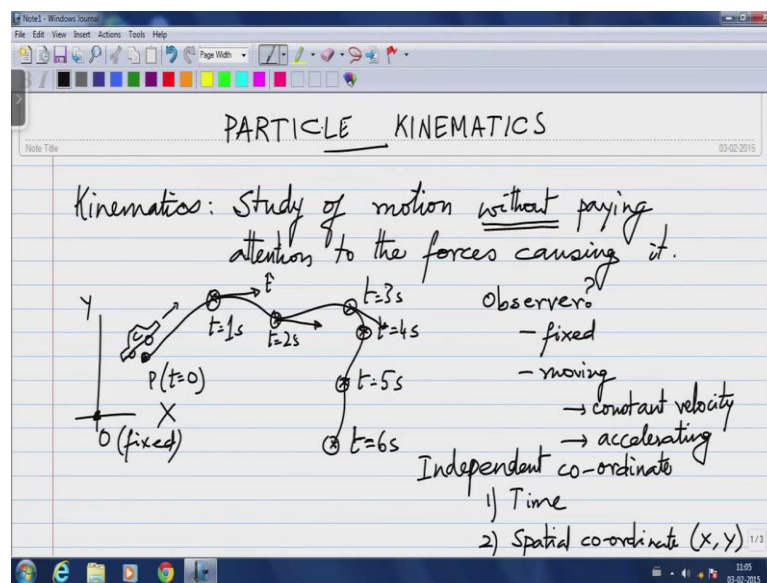 Note1 - Windows Journal
File Edit View Insert Actions Tools Help
Page Width
B I
PARTICLE KINEMATICS
Note Title
03-02-2015
Kinematics: Study of motion without paying
attention to the forces causing it.
Y
t̂
t=1s
t=2s
t=3s
t=4s
t=5s
t=6s
P(t=0)
X
O (fixed)
Observer?
- fixed
- moving
→ constant velocity
→ accelerating
Independent co-ordinate
1) Time
2) Spatial co-ordinate (X, Y)
1/3
11:05
03-02-2015